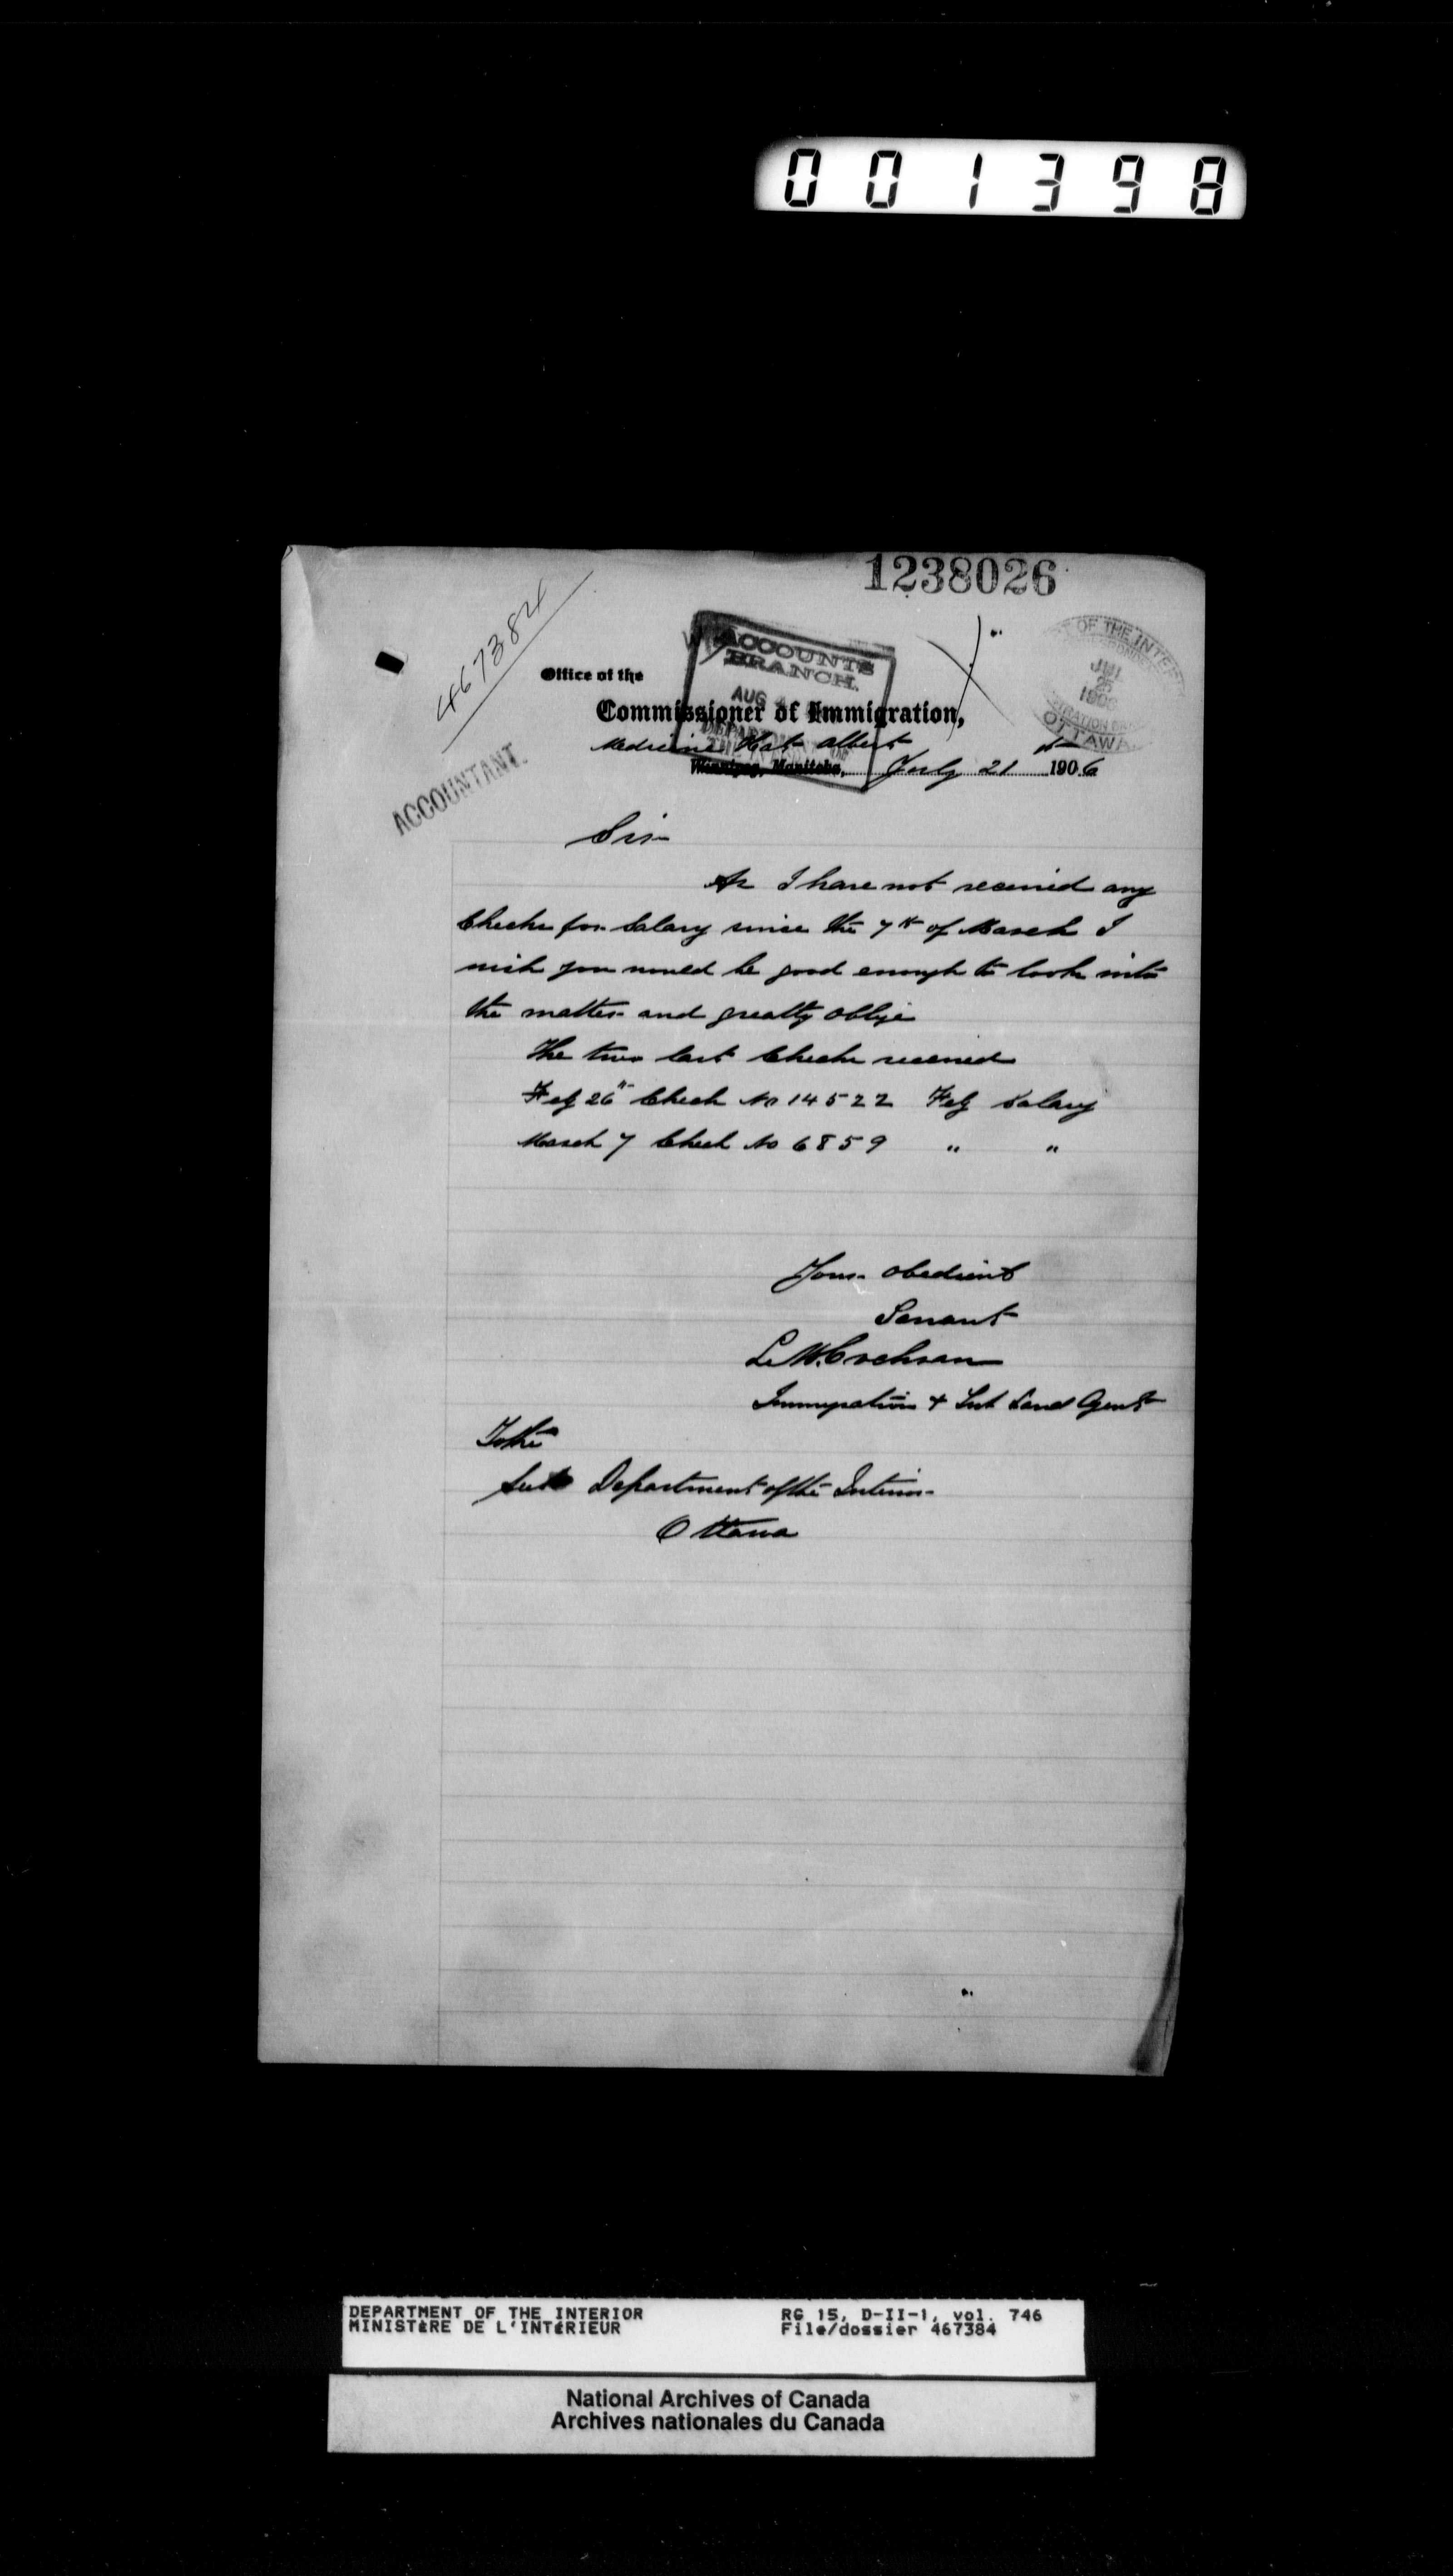 001398
1238026
467384
ACCOUNTS
BRANCH.
AUG
OF THE INTERI
JUL
25
1906
OTTAWA
Office of the
Commissioner of Immigration,
Medicine Hat Albert
Winnipeg, Manitoba, July 21st 1906
ACCOUNTANT.
Sir
As I have not received any
Checks for Salary since the 7th of March I
wish you would be good enough to look into
the matter and greatly oblige
The two last Checks received
Feby 26" Check No 14522 Feby Salary
March 7 Check No 6859 " "
Your obedient
Servant
L. M. Cochran
Immigration & Sub Land Agent
To the
Department of the Interior
Ottawa
DEPARTMENT OF THE INTERIOR
MINISTÈRE DE L'INTÉRIEUR
RG 15, D-II-1, vol. 746
File/dossier 467384
National Archives of Canada
Archives nationales du Canada